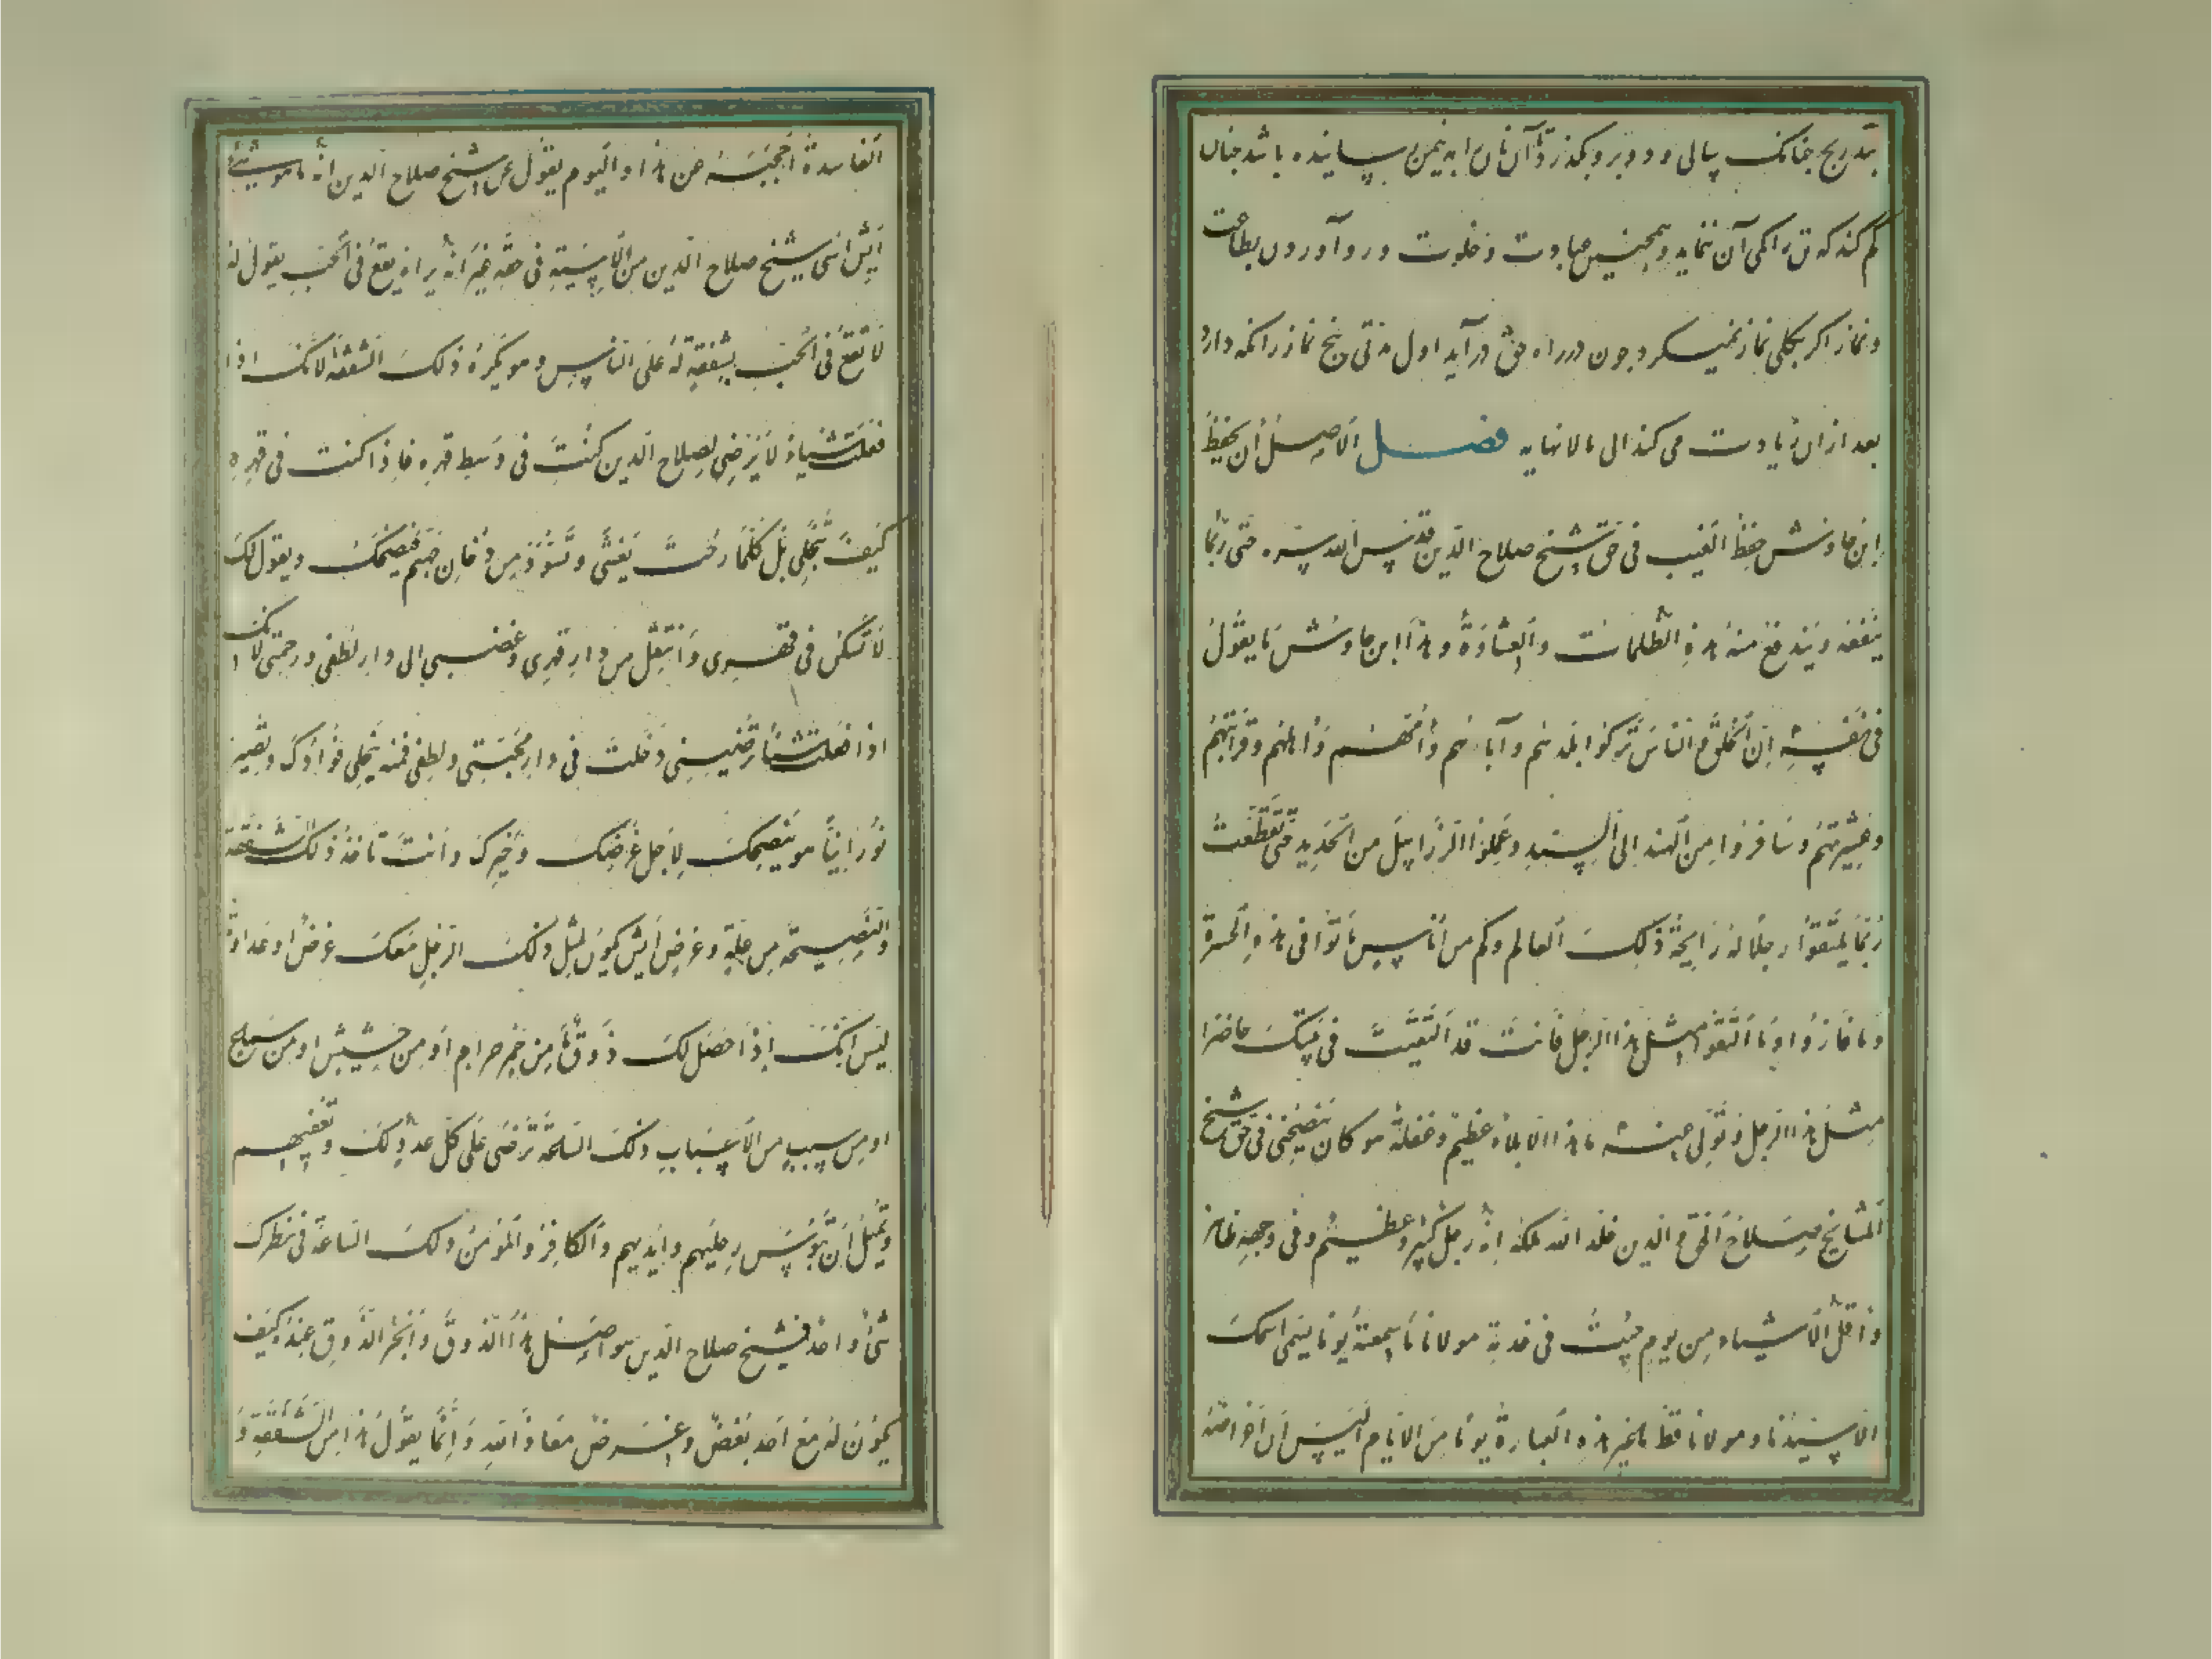 بتدریج چنانک سالی و دو برو بکذرد تا آن نان را به نیمن رسانیده باشد چنان
کم کند که تن را کمی آن ننماید و همچنین عبادت و خلوت و رو آوردن بطاعت
و نماز اکر بکلی نماز نمیکرد چون در راه حق درآید اول مدتی پنج نماز را نکه دارد
بعد ازان زیادت می کند الی مالانهایه فصل الاصل ان یحفظ
ابن چاوش حفظ الغیب فی حق شیخ صلاح الدین قدس الله سره حتی ربما
ینفعه و یندفع منه هذه الظلمات والغشاوة و هذا ابن چاوش ما یقول
فی نفسه ان الخلق و الناس ترکوا بلدهم و آباءهم و امهم و اهلهم و قرابتهم
و عشیرتهم و سافروا من الهند الی السند و عملوا الزرابیل من الحدید حتی تقطعت
ربما یلتقوا رجلا له رایحة ذلک العالم و کم من اناس ماتوا فی هذه الحسرة
و ما فازوا و ما التقوا مثل هذا الرجل فانت قد التقیت فی بیتک حاضرا
مثل هذا الرجل و تولی عنه ما هذا الا بلاء عظیم و غفلة هو کان ینصحنی فی حق شیخ
المشایخ صلاح الحق و الدین خلد الله ملکه انه رجل کبیر و عظیم و فی وجهه ظاهر
و اقل الاشیاء من یوم جئت فی خدمة مولانا ما سمعته یوما یسمی اسمک
الا سیدنا و مولانا قط ما غیر هذه العبارة یوما من الایام الیس ان اغراضه
الفاسدة احجبته عن هذا و الیوم یقول عن شیخ صلاح الدین انه ما هو شیئ
ایش اسی شیخ صلاح الدین من الاسیة فی حقه غیر انه یراه یقع فی الجب یقول له
لا تقع فی الجب بشفقة له علی الناس و هو یکره ذلک الشفقة لانک اذا
فعلت شیاء لا یرضی لصلاح الدین کنت فی وسط قهره فاذا کنت فی قهره
کیف تنجلی بل کلما رحت یغشی و تسود من دخان جهنم فینصحک و یقول لک
لا تسکن فی قهری و انتقل من دار قهری و غضبی الی دار لطفی و رحمتی لانک
اذا فعلت شیأ یرضینی دخلت فی دار محبتی و لطفی فمنه ینجلی فؤادک و یصیر
نورانیا هو ینصحک لاجل غرضک و خیرک و انت تاخذ ذلک الشفقة
و النصیحة من علة و غرض ایش یکون لمثل ذلک الرجل معک غرض او عداوة
لیس انک اذا حصل لک ذوق ما من خمر حرام او من حشیش او من سماع
او من سبب من الاسباب ذلک الساعة ترضی علی کل عدو لک و تعفیهم
و تمیل ان تبوس رجلیهم و ایدیهم و الکافر و المؤمن ذلک الساعة فی نظرک
شئ واحد فشیخ صلاح الدین هو اصل هذا الذوق و ابحر الذوق عنده کیف
یکون له مع احد بغض و غرض معاذ الله و انما یقول هذا من الشفقة و